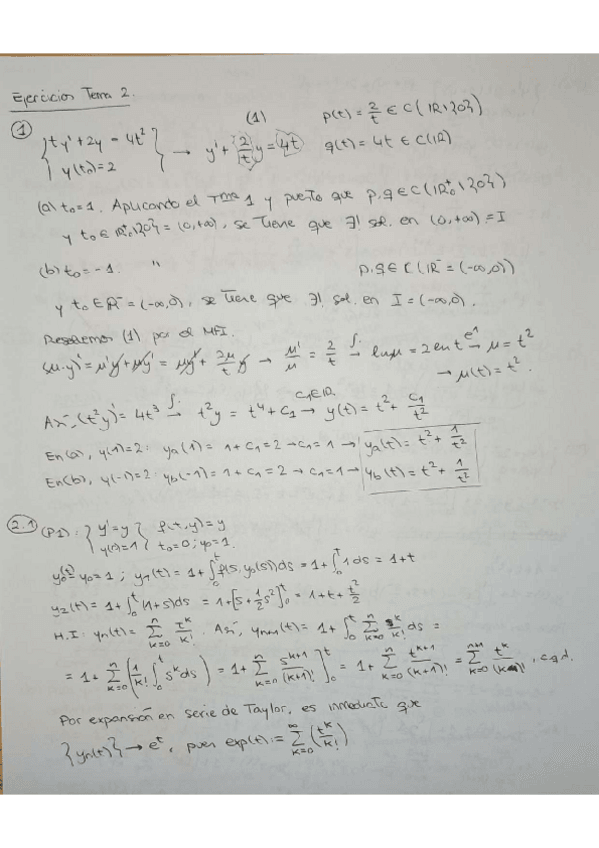 Ejercicios Tema 2.
(1) p(t) = 2/t ∈ C(ℝ\{0})
① { ty' + 2y = 4t² } → y' + (2/t)y = 4t g(t) = 4t ∈ C(ℝ)
y(t₀) = 2
(a) t₀=1. Aplicando el Tma 1 y puesto que p,g ∈ C(ℝ₀⁺\{0})
y t₀ ∈ ℝ₀⁺\{0} = (0,+∞), se tiene que ∃! sol. en (0,+∞) = I
(b) t₀ = -1. " p,g ∈ C(ℝ⁻ = (-∞,0))
y t₀ ∈ ℝ⁻ = (-∞,0), se tiene que ∃! sol. en I = (-∞,0).
Resolvemos (1) por el MFI.
(μ·y)' = μ'y + μy' = μy' + (2μ/t)y → μ'/μ = 2/t →∫ lnμ = 2 ln t →e^ μ = t²
→ μ(t) = t².
C₁∈ℝ.
Así, (t²y)' = 4t³ →∫ t²y = t⁴ + C₁ → y(t) = t² + C₁/t²
En (a), y(1)=2: ya(1) = 1 + C₁ = 2 → C₁ = 1 → ya(t) = t² + 1/t²
En (b), y(-1)=2: yb(-1) = 1 + C₁ = 2 → C₁ = 1 → yb(t) = t² + 1/t²
2.1 (P1): { y' = y { f(t,y) = y
y(0) = 1 t₀ = 0; y₀ = 1.
y₀(t) = y₀ = 1; y₁(t) = 1 + ∫₀ᵗ f(s, y₀(s))ds = 1 + ∫₀ᵗ 1 ds = 1 + t
y₂(t) = 1 + ∫₀ᵗ (1+s)ds = 1 + [s + ½s²]₀ᵗ = 1 + t + t²/2
H.I: yn(t) = Σ_{k=0}^{n} tᵏ/k! . Así, yn+1(t) = 1 + ∫₀ᵗ Σ_{k=0}^{n} sᵏ/k! ds =
= 1 + Σ_{k=0}^{n} (1/k! ∫₀ᵗ sᵏ ds) = 1 + Σ_{k=0}^{n} s^{k+1}/(k+1)! ]₀ᵗ = 1 + Σ_{k=0}^{n} t^{k+1}/(k+1)! = Σ_{k=0}^{n+1} tᵏ/(k)!, c.q.d.
Por expansión en serie de Taylor, es inmediato que
{yn(t)} → eᵗ, pues exp(t) := Σ_{k=0}^{∞} (tᵏ/k!)